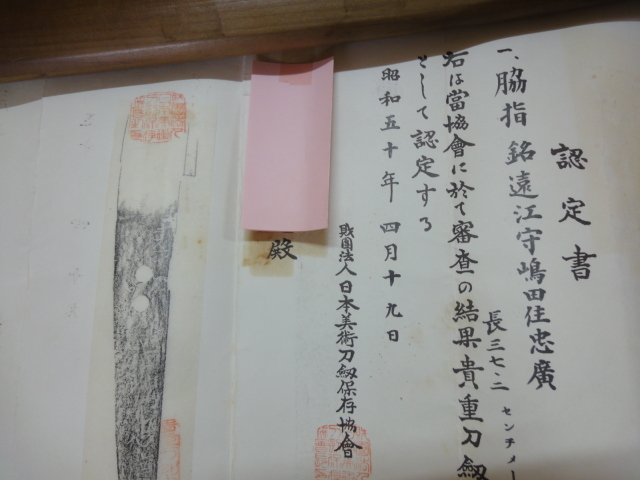 認定書
一、脇指 銘 遠江守嶋田住忠廣
長三七、二 センチメー
右は當協會に於て審査の結果貴重刀劔
として認定する
昭和五十年 四月十九日
財團法人日本美術刀劔保存協會
殿